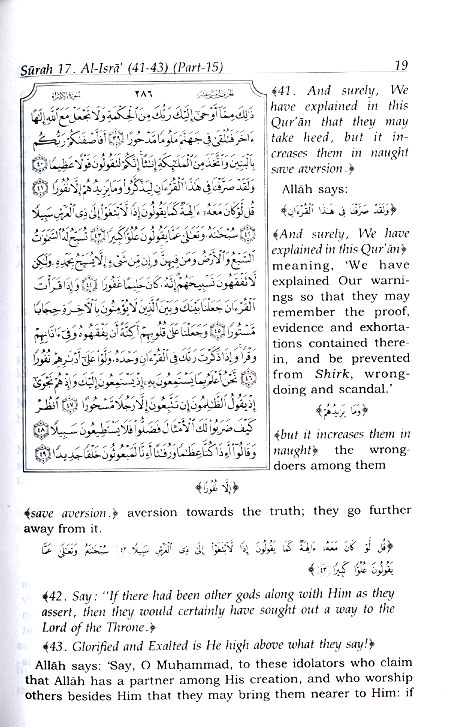 Sūrah 17. Al-Isrā' (41-43) (Part-15)
19
٢٨٦
ذَٰلِكَ مِمَّآ أَوْحَىٰٓ إِلَيْكَ رَبُّكَ مِنَ ٱلْحِكْمَةِ وَلَا تَجْعَلْ مَعَ ٱللَّهِ إِلَٰهًا
ءَاخَرَ فَتُلْقَىٰ فِى جَهَنَّمَ مَلُومًا مَّدْحُورًا ٣٩ أَفَأَصْفَىٰكُمْ رَبُّكُم
بِٱلْبَنِينَ وَٱتَّخَذَ مِنَ ٱلْمَلَٰٓئِكَةِ إِنَٰثًا إِنَّكُمْ لَتَقُولُونَ قَوْلًا عَظِيمًا ٤٠
وَلَقَدْ صَرَّفْنَا فِى هَٰذَا ٱلْقُرْءَانِ لِيَذَّكَّرُوا۟ وَمَا يَزِيدُهُمْ إِلَّا نُفُورًا ٤١
قُل لَّوْ كَانَ مَعَهُۥٓ ءَالِهَةٌ كَمَا يَقُولُونَ إِذًا لَّٱبْتَغَوْا۟ إِلَىٰ ذِى ٱلْعَرْشِ سَبِيلًا
٤٢ سُبْحَٰنَهُۥ وَتَعَٰلَىٰ عَمَّا يَقُولُونَ عُلُوًّا كَبِيرًا ٤٣ تُسَبِّحُ لَهُ ٱلسَّمَٰوَٰتُ
ٱلسَّبْعُ وَٱلْأَرْضُ وَمَن فِيهِنَّ وَإِن مِّن شَىْءٍ إِلَّا يُسَبِّحُ بِحَمْدِهِۦ وَلَٰكِن
لَّا تَفْقَهُونَ تَسْبِيحَهُمْ إِنَّهُۥ كَانَ حَلِيمًا غَفُورًا ٤٤ وَإِذَا قَرَأْتَ
ٱلْقُرْءَانَ جَعَلْنَا بَيْنَكَ وَبَيْنَ ٱلَّذِينَ لَا يُؤْمِنُونَ بِٱلْءَاخِرَةِ حِجَابًا
مَّسْتُورًا ٤٥ وَجَعَلْنَا عَلَىٰ قُلُوبِهِمْ أَكِنَّةً أَن يَفْقَهُوهُ وَفِىٓ ءَاذَانِهِمْ
وَقْرًا وَإِذَا ذَكَرْتَ رَبَّكَ فِى ٱلْقُرْءَانِ وَحْدَهُۥ وَلَّوْا۟ عَلَىٰٓ أَدْبَٰرِهِمْ نُفُورًا
٤٦ نَّحْنُ أَعْلَمُ بِمَا يَسْتَمِعُونَ بِهِۦٓ إِذْ يَسْتَمِعُونَ إِلَيْكَ وَإِذْ هُمْ نَجْوَىٰٓ
إِذْ يَقُولُ ٱلظَّٰلِمُونَ إِن تَتَّبِعُونَ إِلَّا رَجُلًا مَّسْحُورًا ٤٧ ٱنظُرْ
كَيْفَ ضَرَبُوا۟ لَكَ ٱلْأَمْثَالَ فَضَلُّوا۟ فَلَا يَسْتَطِيعُونَ سَبِيلًا ٤٨
وَقَالُوٓا۟ أَءِذَا كُنَّا عِظَٰمًا وَرُفَٰتًا أَءِنَّا لَمَبْعُوثُونَ خَلْقًا جَدِيدًا ٤٩
﴾41. And surely, We
have explained in this
Qur'ān that they may
take heed, but it in-
creases them in naught
save aversion.﴿
Allāh says:
﴿وَلَقَدْ صَرَّفْنَا فِى هَٰذَا ٱلْقُرْءَانِ﴾
﴾And surely, We have
explained in this Qur'ān﴿
meaning, 'We have
explained Our warni-
ngs so that they may
remember the proof,
evidence and exhorta-
tions contained there-
in, and be prevented
from Shirk, wrong-
doing and scandal.'
﴿وَمَا يَزِيدُهُمْ﴾
﴾but it increases them in
naught﴿ the wrong-
doers among them
﴿إِلَّا نُفُورًا﴾
﴾save aversion.﴿ aversion towards the truth; they go further
away from it.
﴿قُل لَّوْ كَانَ مَعَهُۥٓ ءَالِهَةٌ كَمَا يَقُولُونَ إِذًا لَّٱبْتَغَوْا۟ إِلَىٰ ذِى ٱلْعَرْشِ سَبِيلًا ٤٢ سُبْحَٰنَهُۥ وَتَعَٰلَىٰ عَمَّا
يَقُولُونَ عُلُوًّا كَبِيرًا ٤٣﴾
﴾42. Say: "If there had been other gods along with Him as they
assert, then they would certainly have sought out a way to the
Lord of the Throne.﴿
﴾43. Glorified and Exalted is He high above what they say!﴿
Allāh says: 'Say, O Muḥammad, to these idolators who claim
that Allāh has a partner among His creation, and who worship
others besides Him that they may bring them nearer to Him: if